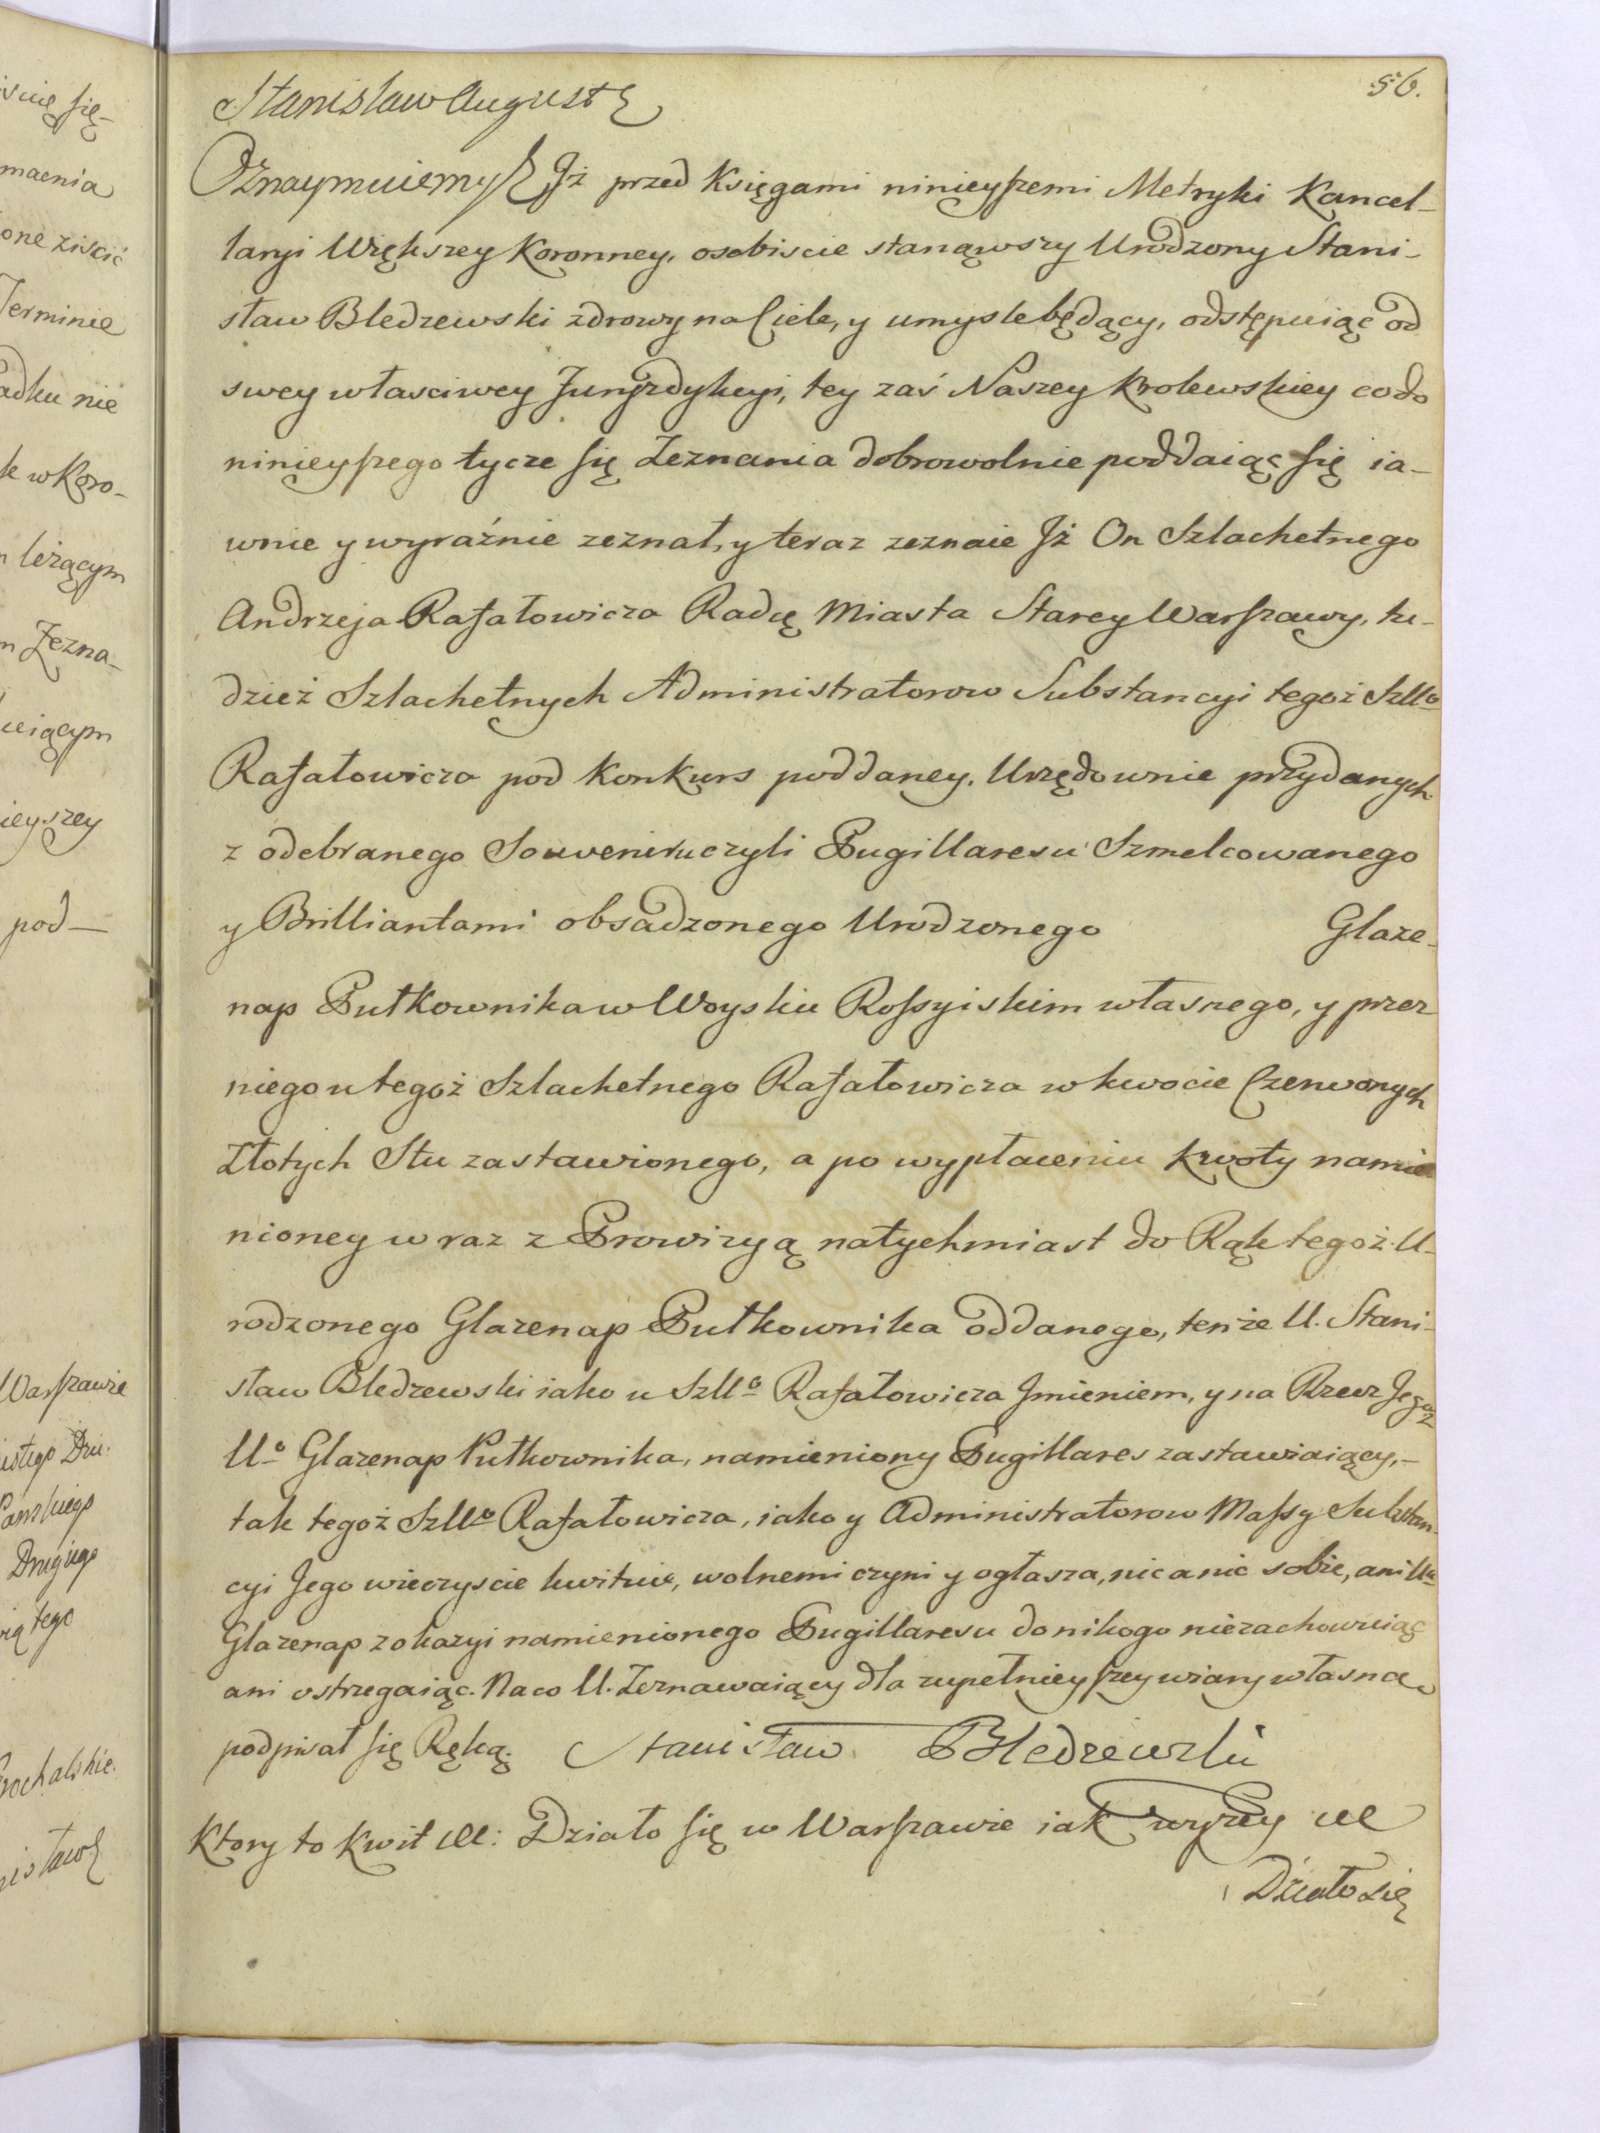 56.
Stanisław August &
Oznaymuiemy & Jż przed Księgami ninieyszemi Metryki Kancel-
laryi Większey Koronney, osobiscie stanąwszy Urodzony Stani-
sław Bledzewski zdrowy na Ciele, y umysle będący, odstępuiąc od
swey własciwey Juryzdykcyi, tey zaś Naszey Krolewskiey co do
ninięyszego tycze się Zeznania dobrowolnie poddaiąc się ia-
wnie y wyraźnie zeznał, y teraz zeznaie Jż On Szlachetnego
Andrzeja Rafałowicza Radcę Miasta Starey Warszawy, tu-
dzież Szlachetnych Administratorow Substancyi tegoż Szllo
Rafałowicza pod Konkurs poddaney, Urzędownie przydanych
z odebranego Souveniru czyli Pugillaresu Szmelcowanego
y Brilliantami obsadzonego Urodzonego Glaze-
nap Pułkownika w Woysku Rossyiskim własnego, y przez
niego u tegoż Szlachetnego Rafałowicza w kwocie Czerwonych
Złotych Stu zastawionego, a po wypłaceniu kwoty namie
nioney wraz z Prowizyą natychmiast do Rąk tegoż U-
rodzonego Glazenap Pułkownika oddanego, tenże U. Stani-
sław Bledzewski iako u Szllo Rafałowicza Jmieniem, y na Rzecz Jegoż
Uo Glazenap Pułkownika, namieniony Pugillares zastawiaiący,-
tak tegoż Szllo Rafałowicza, iako y Administratorow Massy Substan-
cyi Jego wieczyscie kwituie, wolnemi czyni y ogłasza, nic a nic sobie, ani Uu
Glazenap z okazyi namienionego Pugillaresu do nikogo niezachowuiąc
ani ostrzegaiąc. Na co U. Zeznawaiący dla zupełnieyszey wiary własną
podpisał się Ręką. Stanisław Bledzewski
Ktory to kwit &c: Działo się w Warszawie iak wyzey &c
Działo się